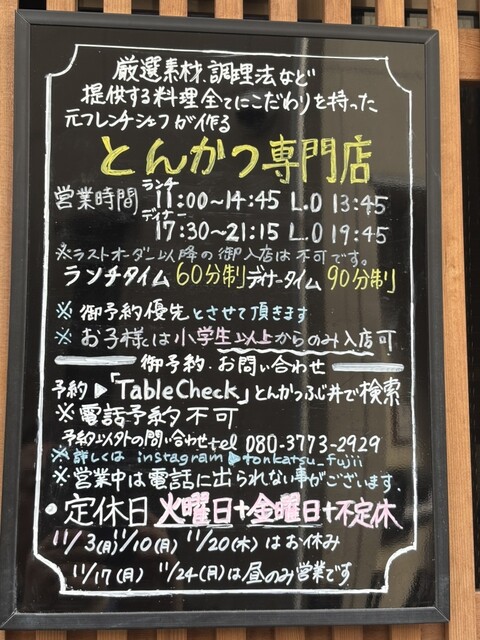 厳選素材、調理法など
提供する料理全てにこだわりを持った
元フレンチシェフが作る
とんかつ専門店
営業時間 ランチ 11:00〜14:45 L.O 13:45
ディナー 17:30〜21:15 L.O 19:45
※ラストオーダー以降の御入店は不可です。
ランチタイム 60分制 ディナータイム 90分制
※ 御予約優先とさせて頂きます
※ お子様は小学生以上からのみ入店可
御予約・お問い合わせ
予約▶「TableCheck」とんかつふじ井で検索
※電話予約不可
予約以外の問い合わせtel 080-3773-2929
※詳しくは instagram▶tonkatsu_fujii
※営業中は電話に出られない事がございます。
● 定休日 火曜日+金曜日+不定休
11/3(月) 11/10(月) 11/20(木) はお休み
11/17(月) 11/24(月)は昼のみ営業です